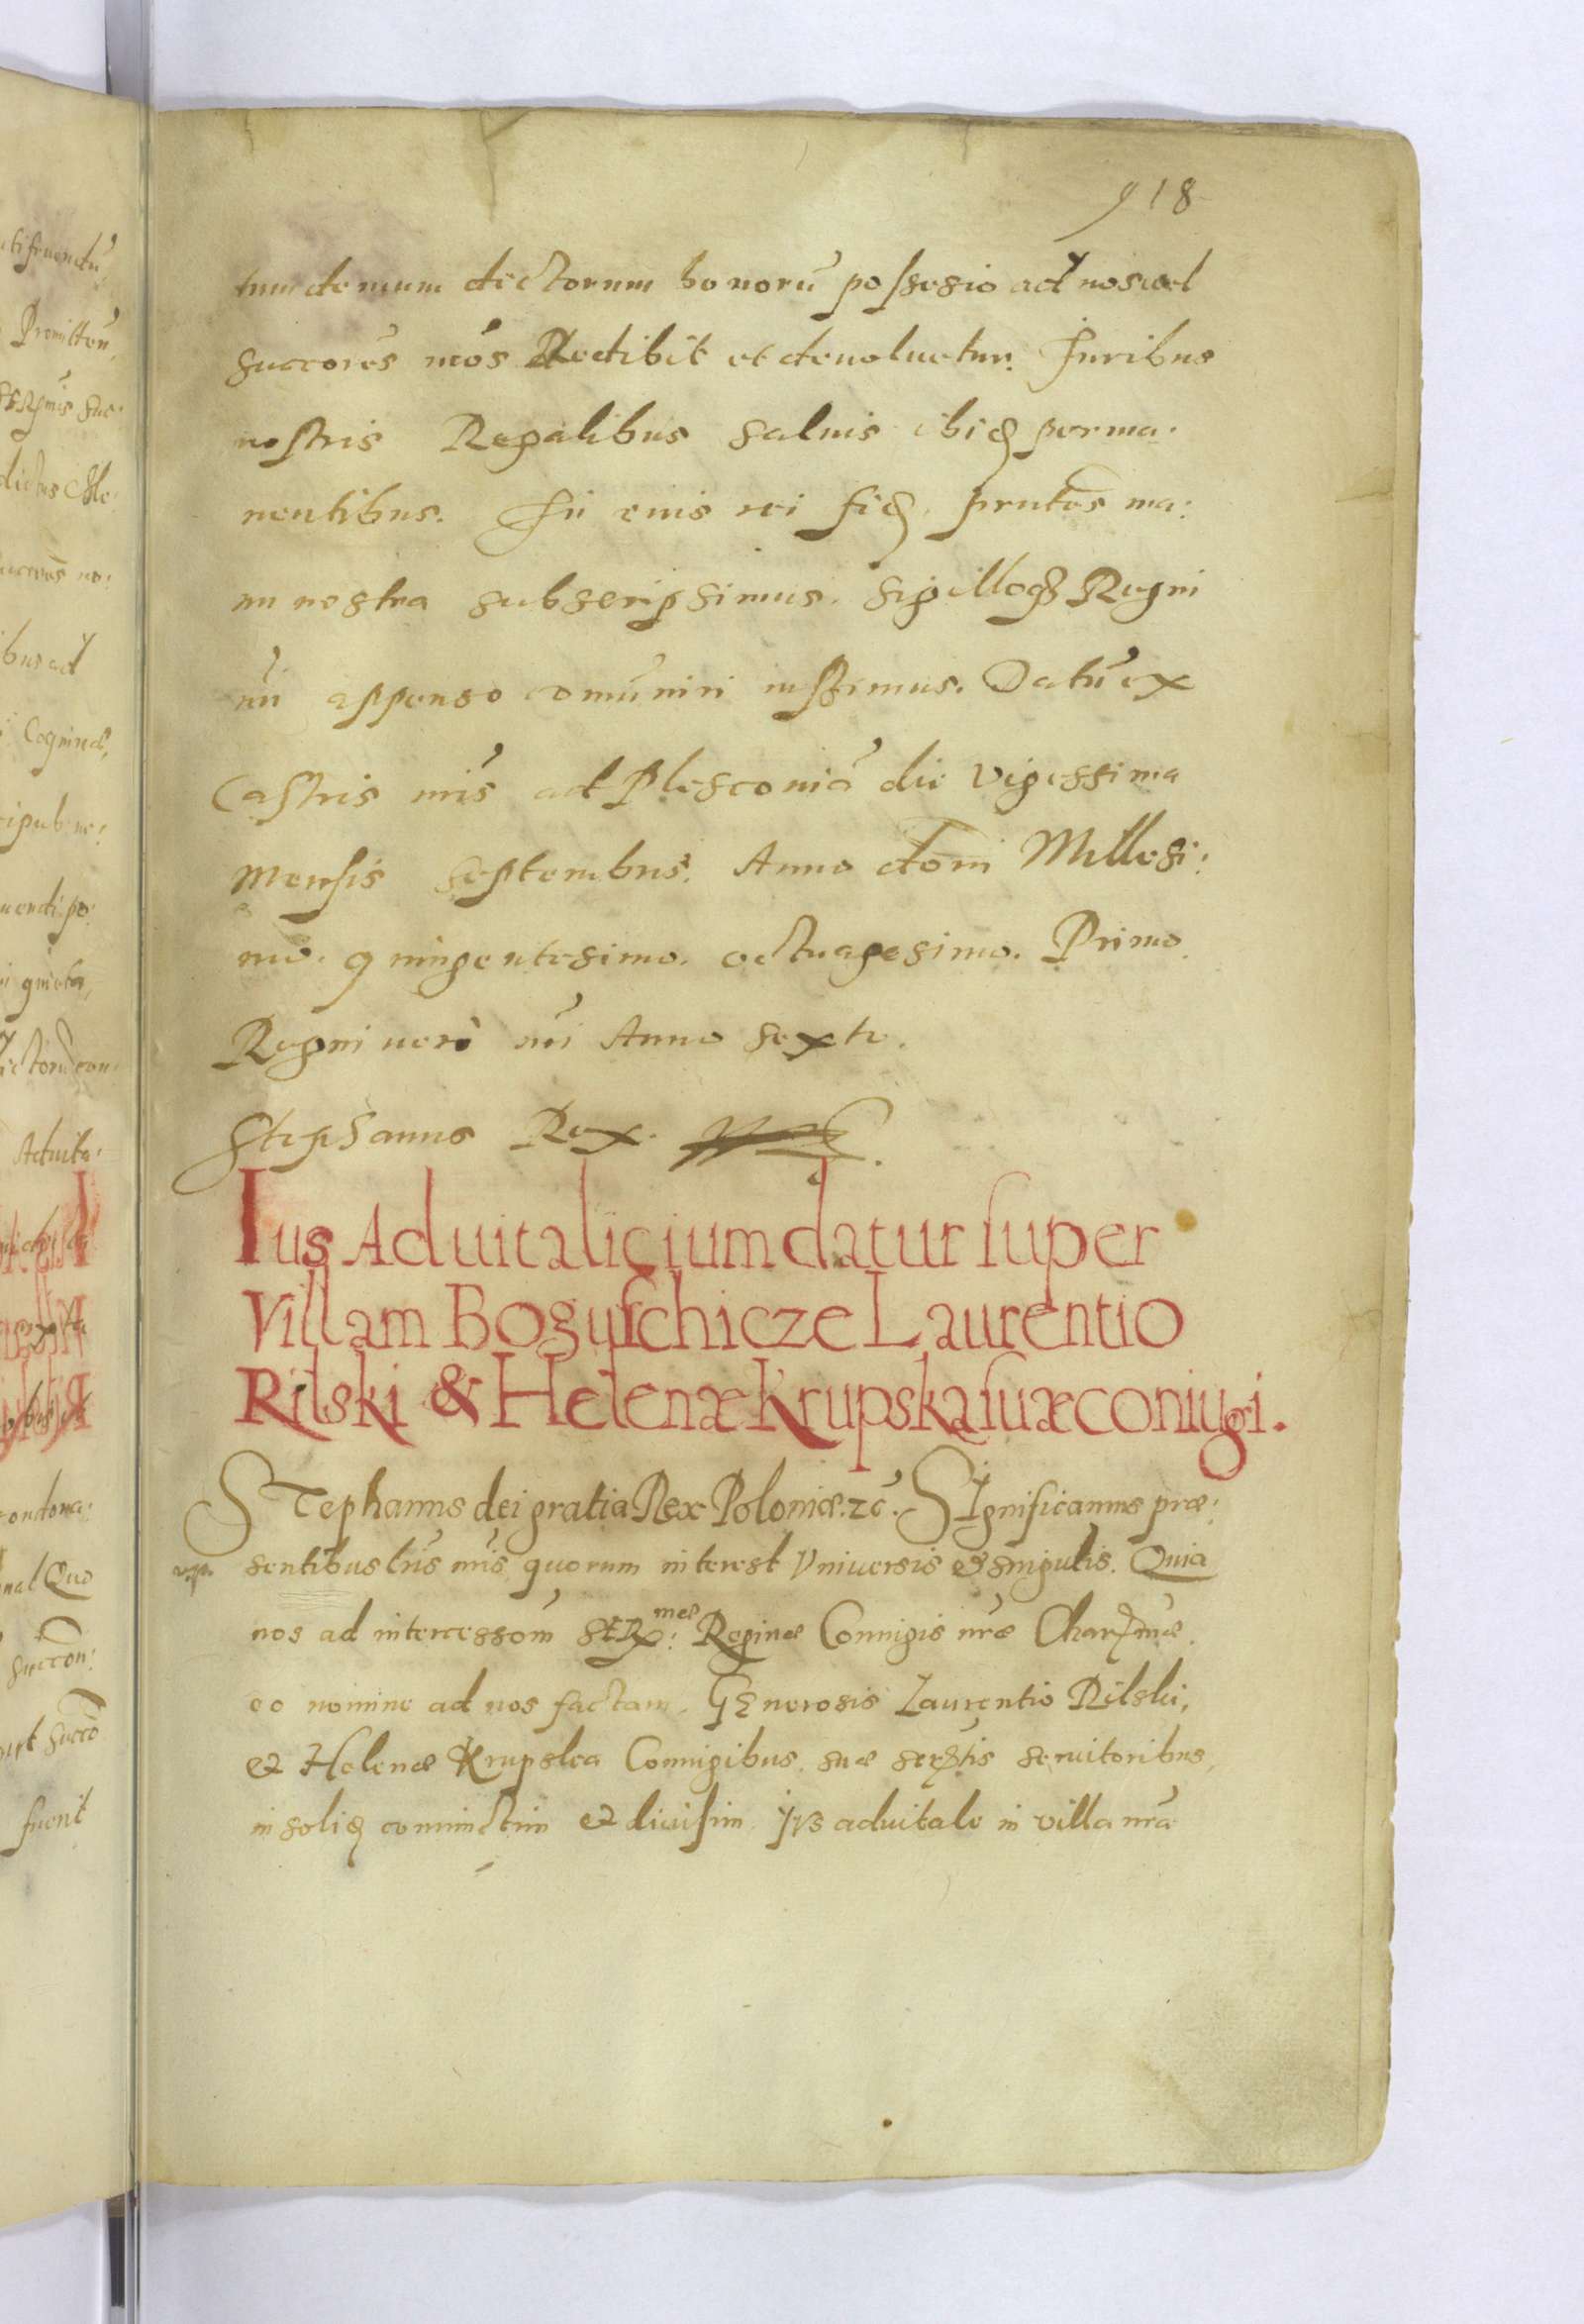 918
tum demum dictorum bonorū possesio ad nos vel
succores nr̄os Redibit et devoluetur. Iuribus
nostris Regalibus saluis ibiq̄ perma:
nentibus. In cuius rei fiđ. prntes ma:
nu nostra subscripsimus. sigilloq̄ Regni
nr̄i appenso comūniri iussimus. Datū ex
Castris nr̄is ad Plesconiā die vigessima
Mensis Septembris. Anno dōni Millesi:
mo. quingentesimo. octuagesimo. Primo
Regni vero nr̄i Anno sexto.
Stephanus Rex.
Ius Aduitalicium datur super
Villam Boguschicze Laurentio
Rilski & Helenæ Krupska suæ coniugi.
Stephanus dei gratia Rex Poloniæ. zc̄. Significamus præ:
sentibus lr̄is nr̄is quorum interest Vniuersis & singulis. Quia
nos ad intercessōm Reginæ Coniugis nr̄æ
eo nomine ad nos factam. Generosis Laurentio Rilski,
& Helenæ Krupska Coniugibus. suæ seruitoribus,
in soliđ coniunctim & diuisim. Ius aduitale in villa nr̄a